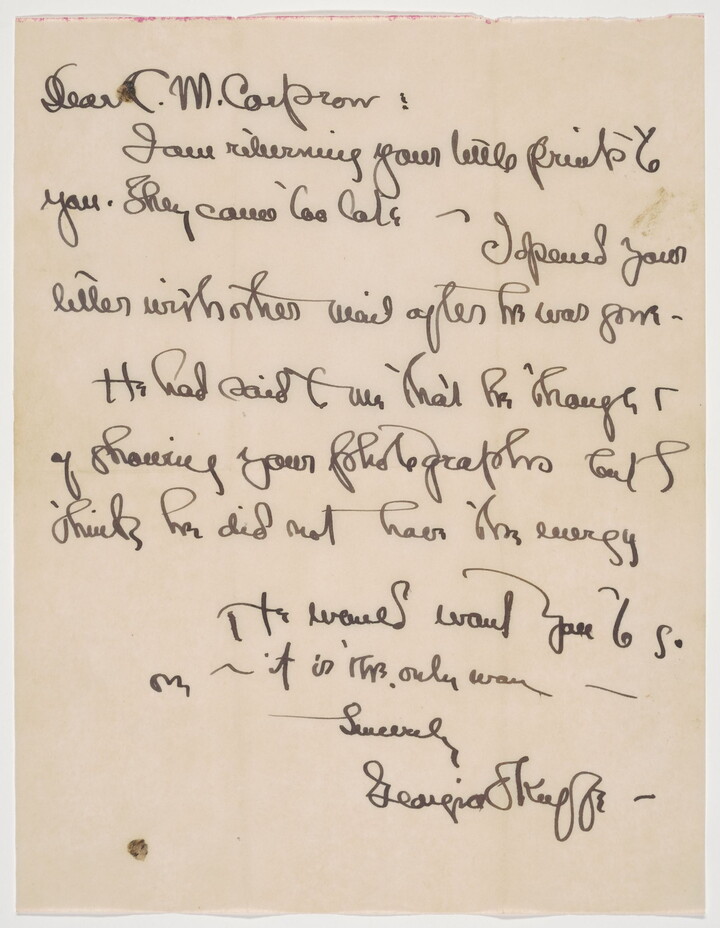 Dear C. M. Corpron :
I am returning your little prints to
you. They came too late ~
I opened your
letter with other mail after he was gone -
He had said to me that he thought
of showing your photographs but I
think he did not have the energy
He would want you to go
on ~ it is the only way —
Sincerely
Georgia O'Keeffe —